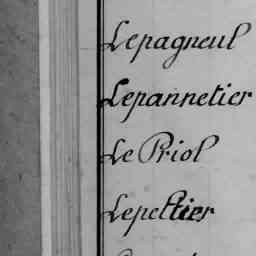 Lepagneul
Lepannetier
Le Priol
Lepeltier